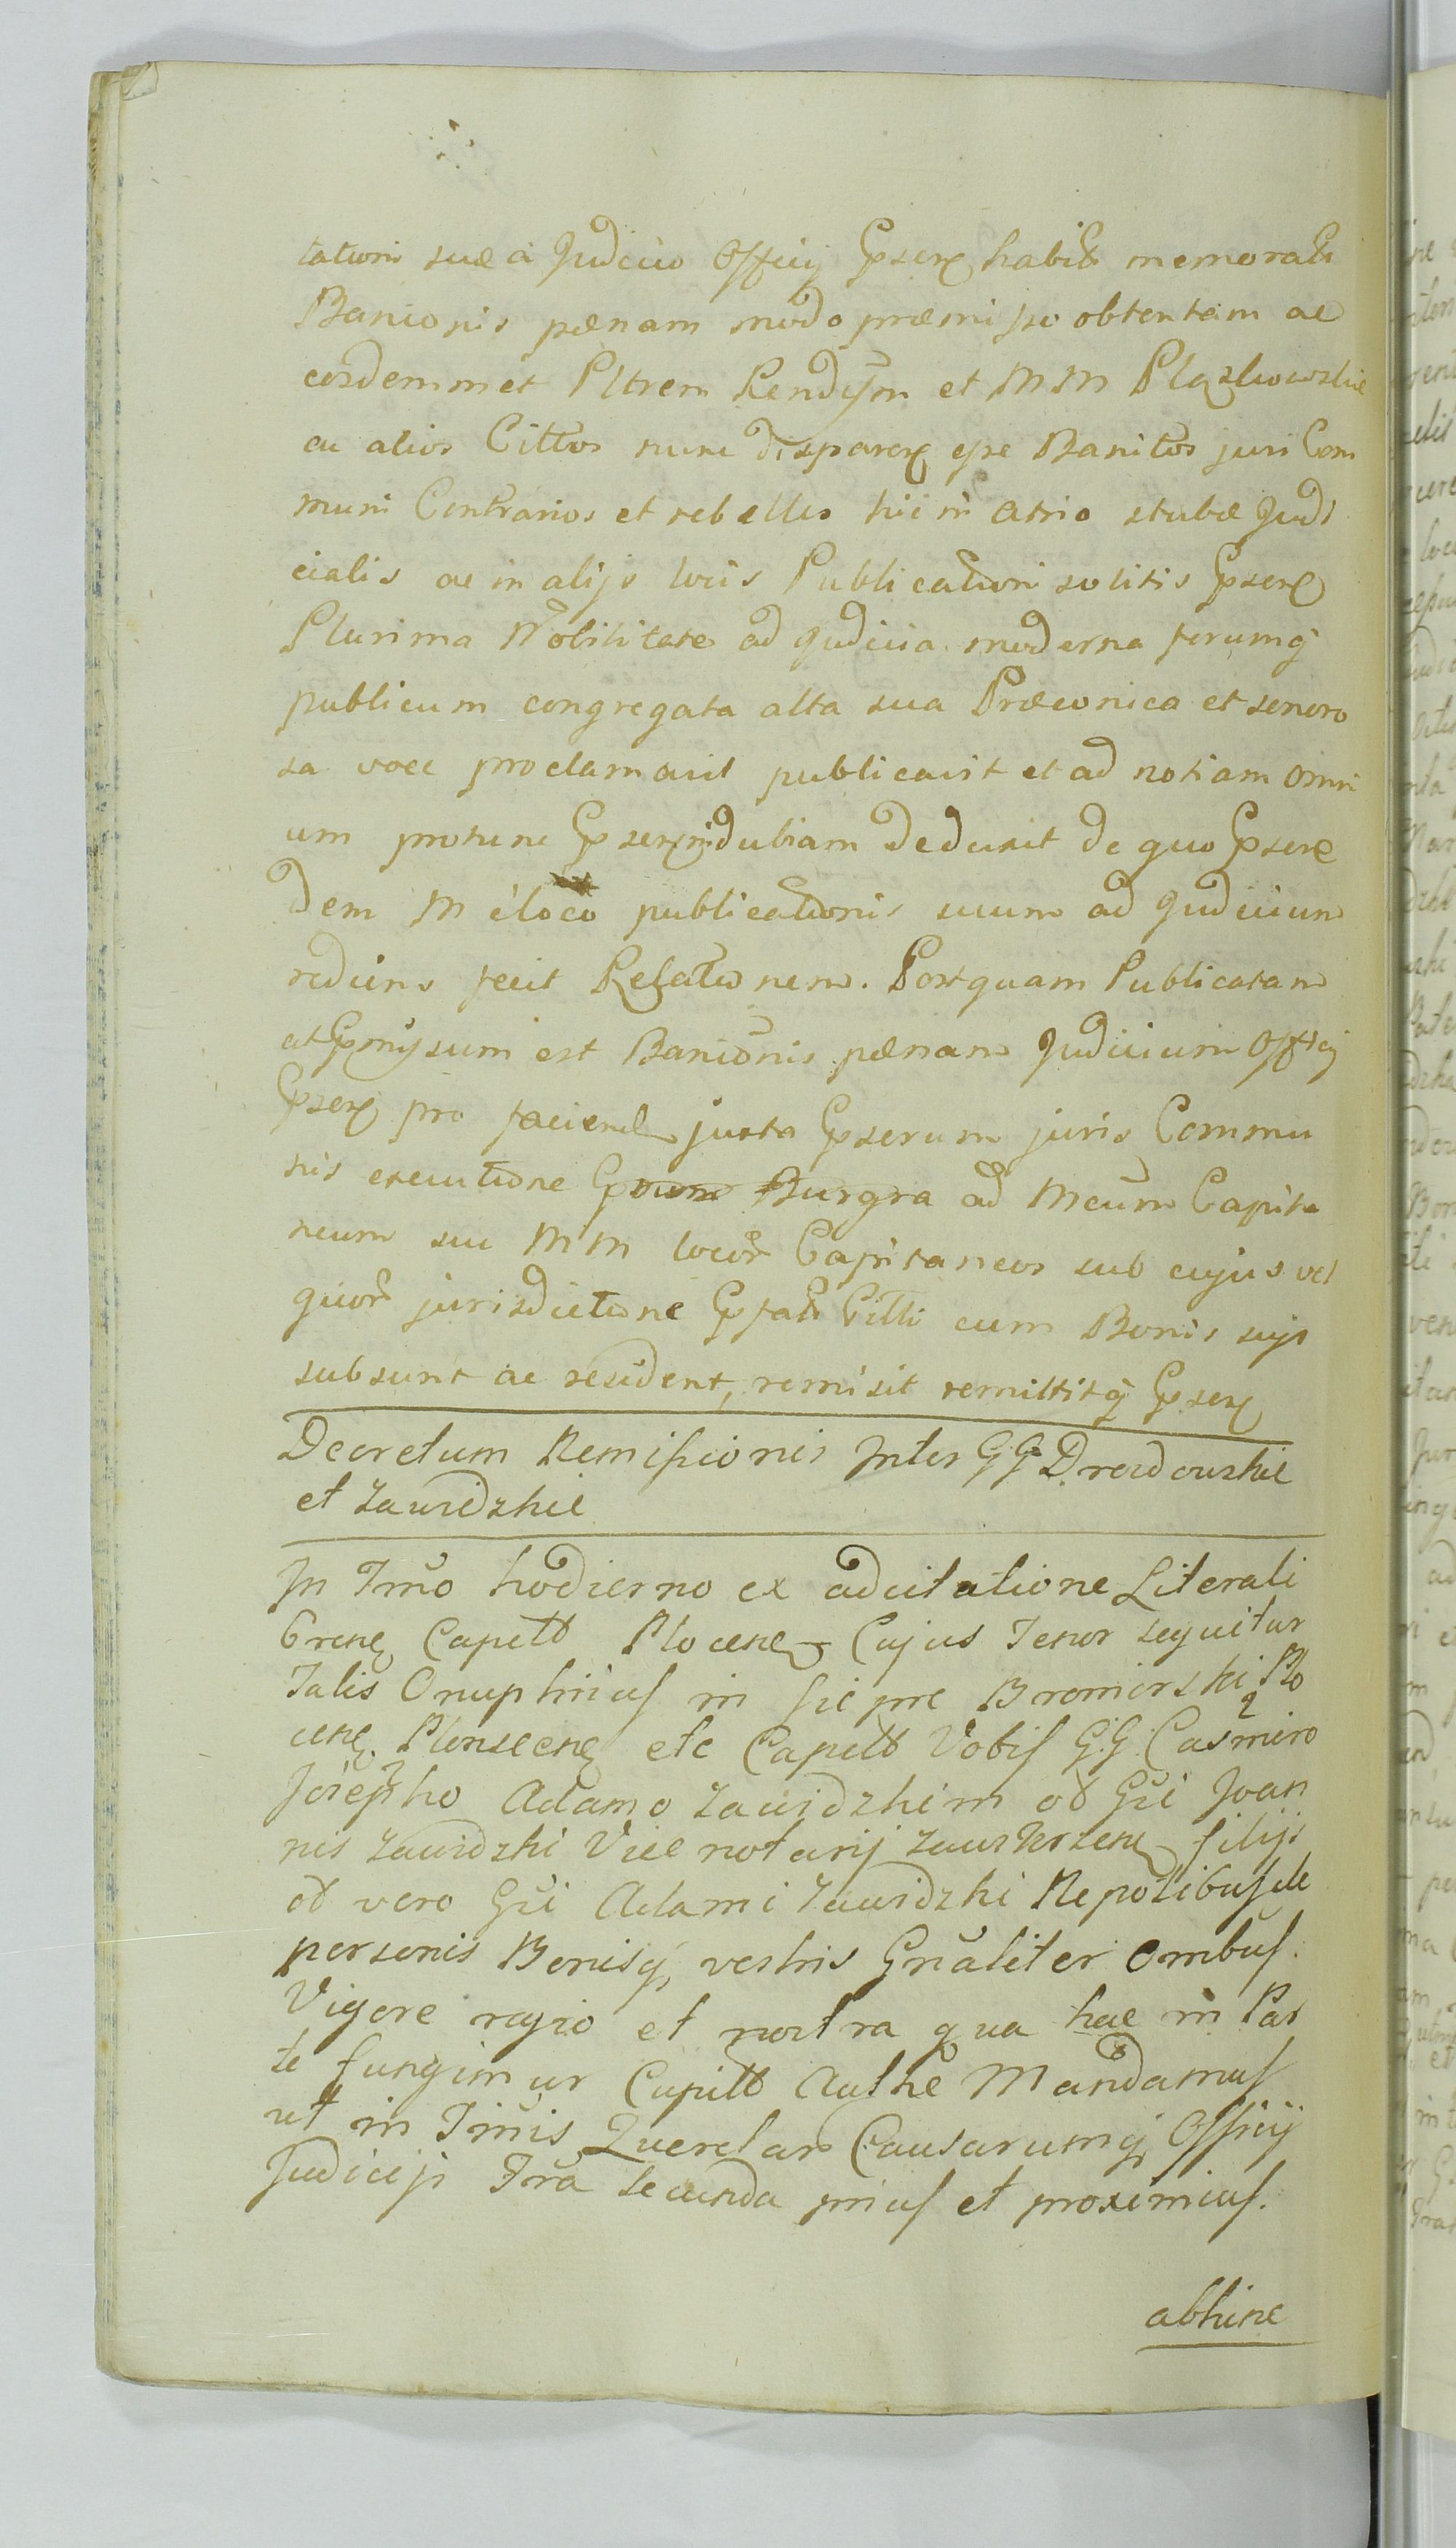 tationi suæ a Judicio Officij Pseñ habit memorat
Banionis pænam modo præmisso obtentam ac
eosdemmet Pltrem Rendum et MM Plaskowskie
ac alios Cittos nunc disparen esse Banitos juri Com
muni Contrarios et rebelles hic in atrio stubæ Judi
cialis ac in alijs locis Publicationi solitis Pseñ
Plurima Nobilitate ad Judicia moderna forumq
publicum congregata alta sua Præconica et sonoro
sa voce proclamavit publicavit et ad notiam omni
um protunc Pseñ indubiam deduxit de quo Pseñ
dem M e loco publicationis suum ad Judicium
rediens fecit Relationem. Postquam Publicatam
ut Pmissum est Banionis pænam Judicium Officij
Pseñ pro faciend juxta Pserum juris Commu
nis executione ad Mcum Capita
neum seu MM locor Capitaneos sub cujus vel
quor jurisdictione Pfati Citti cum Bonis suijs
subsunt ac resident, remisit remittitq Pseñ
Decretum Remissionis Inter GG Drozdowskie
et Zawidzkie
In Tmo hodierno ex adcitatione Literali
Crens Capetto Plocens Cujus Tenor sequitur
Talis Onuphrius in Siepre Bromirski Plo
cens Plonscens etc Capett Vobis GG Casimiro
Josepho Adamo Zawidzkim od Gsi Joan
nis Zawidzki Vice notarij Zawskrzens filijs
od vero Gsi Adami Zawidzki Nepotibus de
personis Bonisq vestris Gnaliter ombus.
Vigore regio et nostra qua hac in Par
te fungimur Capitt Authe Mandamus
ut in Tmis Querelar Causarumq Officij
Judicijs Fra secunda prius et proximius.
abhinc